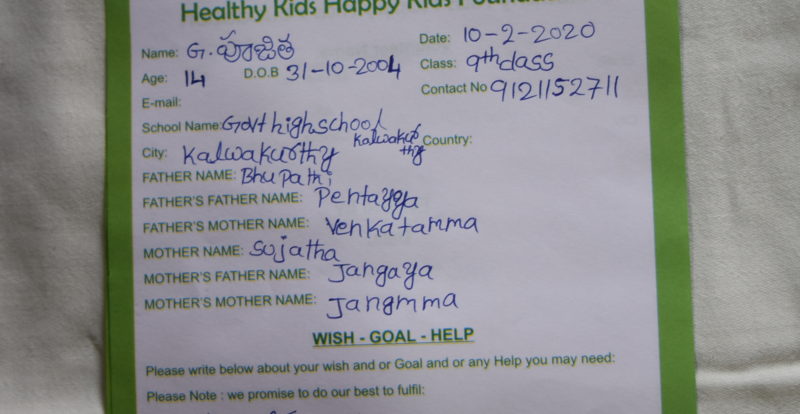 Healthy Kids Happy Kids
Name: G. పూజిత Date: 10-2-2020
Age: 14 D.O.B 31-10-2004 Class: 9th class
E-mail: Contact No 9121152711
School Name: Govt highschool Kalwakurthy
City: Kalwakurthy Country:
FATHER NAME: Bhupathi
FATHER'S FATHER NAME: Pentayya
FATHER'S MOTHER NAME: Venkatamma
MOTHER NAME: Sujatha
MOTHER'S FATHER NAME: Jangaya
MOTHER'S MOTHER NAME: Jangmma
WISH - GOAL - HELP
Please write below about your wish and or Goal and or any Help you may need:
Please Note : we promise to do our best to fulfil: